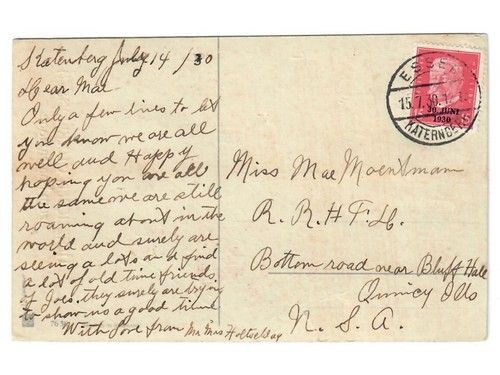 Katenberg July 14 / 30
Dear Mae
Only a few lines to let
you know we are all
well and Happy
hoping you are all
the same we are still
roaming about in the
world and surely are
seeing a lots and find
a lot of old time friends
of Joes. they surely are trying
to show us a good time
With Love from Mr Mrs
ESSEN
15.7.30
KATERNBERG
30. JUNI
1930
5
Miss Mae Moentmann
R. R. #
Bottom road near Bluff Hall
Quincy Ills
N. S. A.